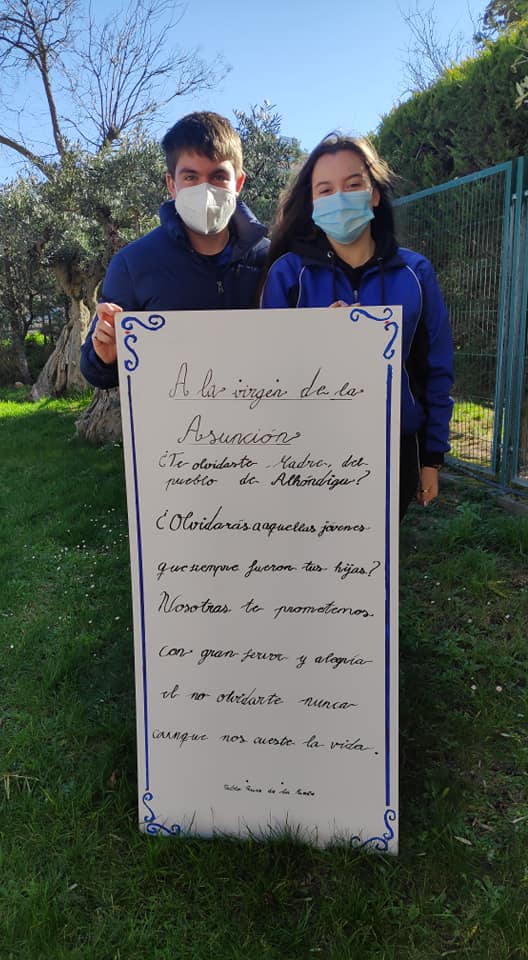 A la virgen de la
Asunción
¿Te olvidaste, Madre, del
pueblo de Alhóndiga?
¿Olvidarás a aquellas jóvenes
que siempre fueron tus hijas?
Nosotras te prometemos
con gran fervor y alegría
el no olvidarte nunca
aunque nos cueste la vida.
de la